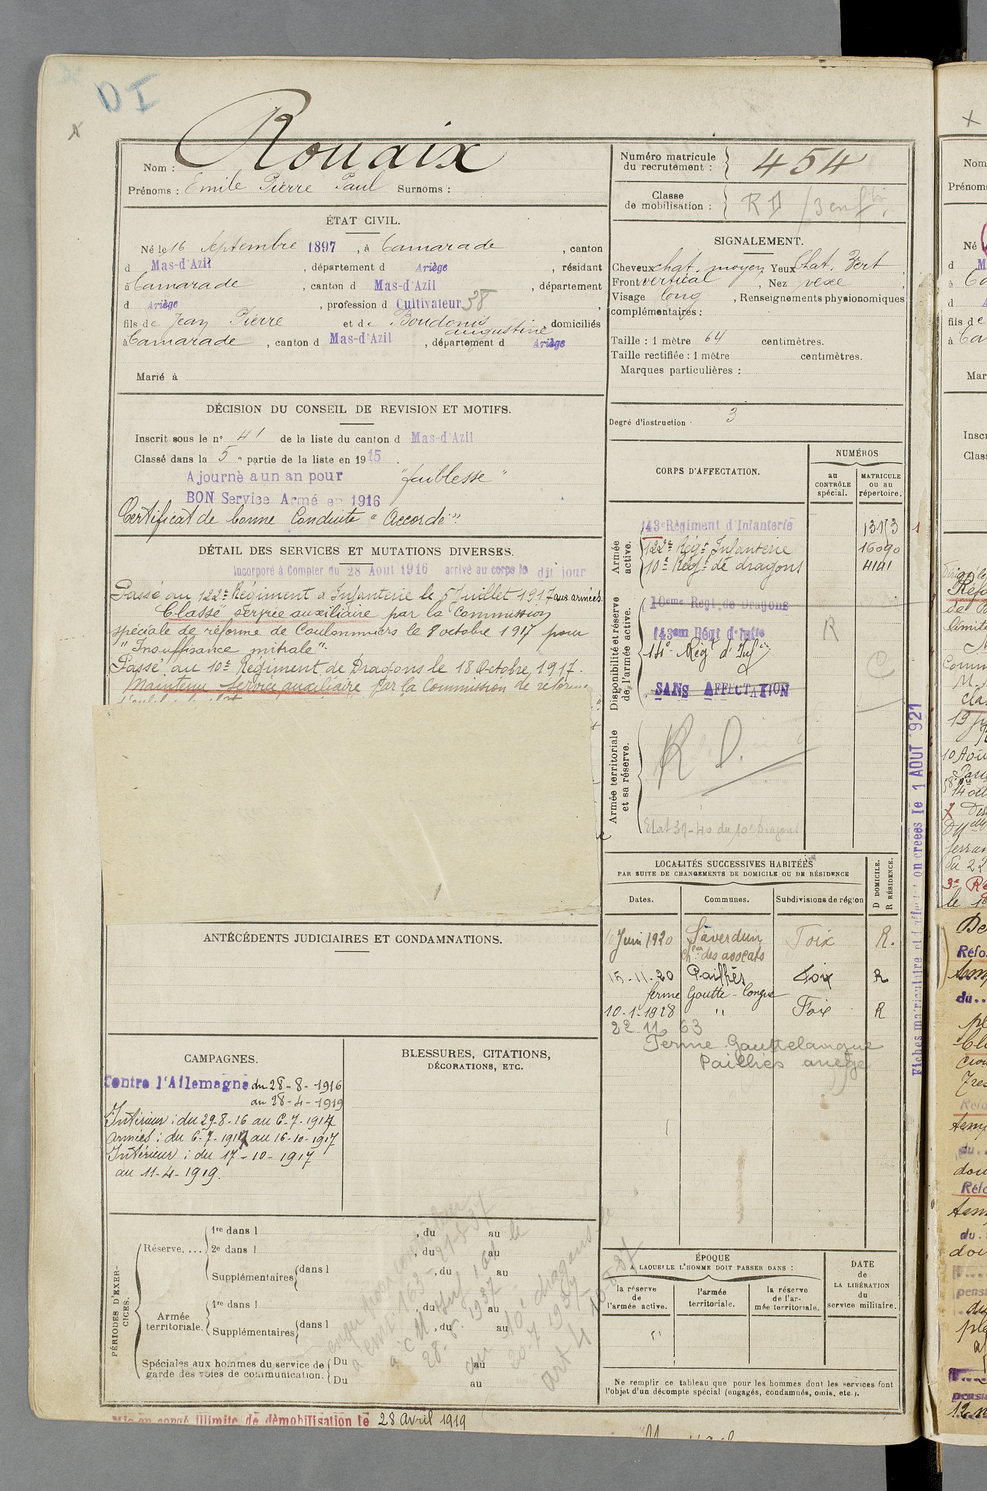 DI
Nom : Rouaix
Prénoms : Emile Pierre Paul Surnoms :
Numéro matricule du recrutement : 454
Classe de mobilisation : RD /3 enfts
ÉTAT CIVIL.
Né le 16 Septembre 1897, à Camarade, canton
d Mas-d'Azil, département d Ariège, résidant
à Camarade, canton d Mas-d'Azil, département
d Ariège, profession d Cultivateur 38
fils de Jean Pierre et de Boudonis Augustine domiciliés
à Camarade, canton d Mas-d'Azil, département d Ariège
Marié à
SIGNALEMENT.
Cheveux chat. moyen Yeux Chat. Vert
Front vertical, Nez vexe,
Visage long, Renseignements physionomiques
complémentaires :
Taille : 1 mètre 64 centimètres.
Taille rectifiée : 1 mètre centimètres.
Marques particulières :
Degré d'instruction 3
DÉCISION DU CONSEIL DE REVISION ET MOTIFS.
Inscrit sous le n° 41 de la liste du canton d Mas-d'Azil
Classé dans la 5e partie de la liste en 1915
Ajourné a un an pour "faiblesse"
BON Service Armé en 1916
Certificat de bonne Conduite "Accordé"
DÉTAIL DES SERVICES ET MUTATIONS DIVERSES.
Incorporé à Compter du 28 Aout 1916 arrivé au corps le dit jour
Passé au 122e Régiment d'Infanterie le 5 Juillet 1917 aux armées
Classé service auxiliaire par la Commission
spéciale de réforme de Coulommiers le 8 octobre 1917 pour
"Insuffisance mitrale".
Passé au 10e Régiment de Dragons le 18 Octobre 1917.
Maintenu service auxiliaire par la Commission de réforme
CORPS D'AFFECTATION.
NUMÉROS
au CONTRÔLE spécial.
MATRICULE ou au répertoire.
Armée active.
143e Régiment d'Infanterie 13173
122e Régt Infanterie 16090
10e Régt de dragons 4141
Disponibilité et réserve de l'armée active.
10eme Regt de Dragons
143eme Régt d'Infie
14e Régt d'Infie
R
SANS AFFECTATION
Armée territoriale et sa réserve.
R D.
Etat 39-40 du 10e Dragons
Fiches matriculaire et d'affectation créées le 1 AOUT 1921
LOCALITÉS SUCCESSIVES HABITÉES
PAR SUITE DE CHANGEMENTS DE DOMICILE OU DE RÉSIDENCE
Dates. Communes. Subdivisions de région D DOMICILE. R RÉSIDENCE.
Juin 1920 Saverdun Foix R.
des avocats
15-11-20 Pailhès Foix R
ferme Goutte-Longue
10-1-1928 " Foix R
22-11-63
Ferme Gouttelongue
Pailhès ariège
ANTÉCÉDENTS JUDICIAIRES ET CONDAMNATIONS.
CAMPAGNES.
Contre l'Allemagne du 28-8-1916
au 28-4-1919
Intérieur : du 29-8-16 au 6-7-1917
Armées : du 6-7-1917 au 16-10-1917
Intérieur : du 17-10-1917
au 11-4-1919.
BLESSURES, CITATIONS,
DÉCORATIONS, ETC.
PÉRIODES D'EXERCICES.
Réserve.... 1re dans l , du au
2e dans l , du au
Supplémentaires dans l , du au
Armée territoriale. 1re dans l , du au
Supplémentaires dans l , du au
Spéciales aux hommes du service de garde des voies de communication. Du au
Du au
ÉPOQUE
À LAQUELLE L'HOMME DOIT PASSER DANS :
la réserve de l'armée active.
l'armée territoriale.
la réserve de l'armée territoriale.
DATE DE LA LIBÉRATION du service militaire.
Ne remplir ce tableau que pour les hommes dont les services font
l'objet d'un décompte spécial (engagés, condamnés, omis, etc.).
Mis en congé illimité de démobilisation le 28 Avril 1919